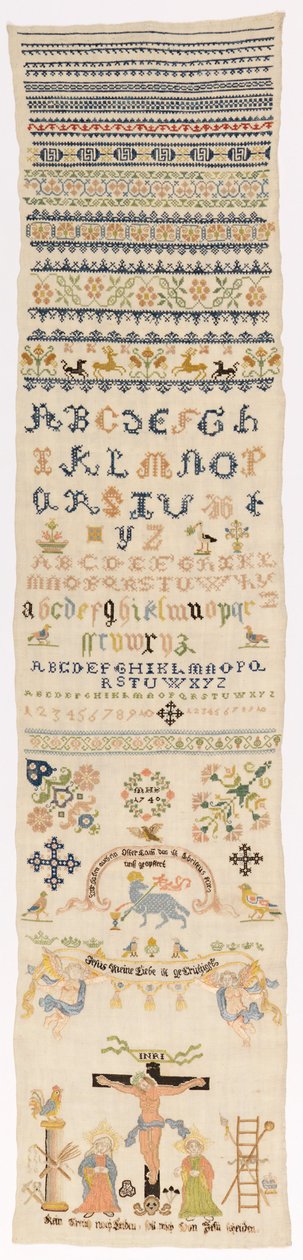 A B C D E F G h
I K L M N O P
Q R S T U V W X
Y Z
A B C D E F G H I K L
M N O P Q R S T U V W X Y
Z
a b c d e f g h i k l m n o p q r
s t u v w x y z
A B C D E F G H I K L M N O P Q
R S T U W X Y Z
A B C D E F G H I K L M N O P Q R S T U W X Y Z
1 2 3 4 5 6 7 8 9 10 1 2 3 4 5 6 7 8 9 10
MHS
1740
Wir haben auch ein Oster Lam das ist Christus fur
uns geopfert
Jesus Meine Liebe ist geCreutziget
INRI
Kein Creutz noch Leiden soll mich von Jesu scheiden